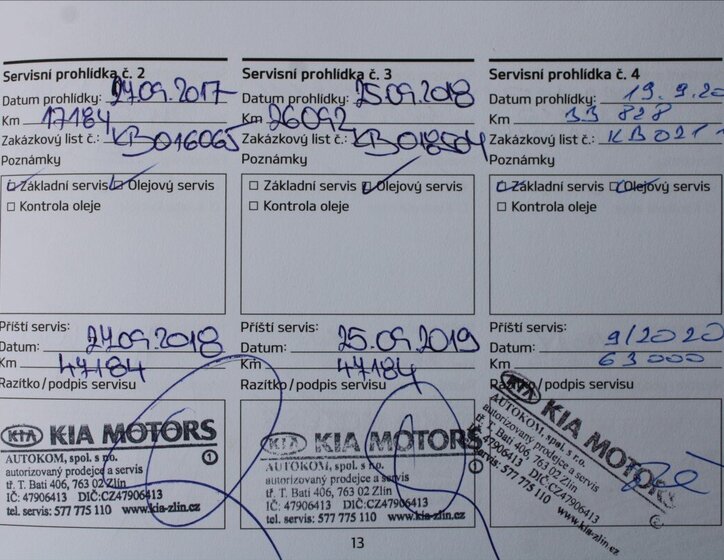 Servisní prohlídka č. 2
Datum prohlídky: 24.09.2017
Km 17184
Zakázkový list č.: KB016065
Poznámky
Základní servis Olejový servis
Kontrola oleje
Příští servis:
Datum: 24.09.2018
Km 47184
Razítko/podpis servisu
KIA KIA MOTORS
AUTOKOM, spol. s r.o.
autorizovaný prodejce a servis
tř. T. Bati 406, 763 02 Zlín
IČ: 47906413 DIČ:CZ47906413
tel. servis: 577 775 110 www.kia-zlin.cz
1
Servisní prohlídka č. 3
Datum prohlídky: 25.09.2018
Km 26092
Zakázkový list č.: KB018504
Poznámky
Základní servis Olejový servis
Kontrola oleje
Příští servis:
Datum: 25.09.2019
Km 47184
Razítko/podpis servisu
KIA KIA MOTORS
AUTOKOM, spol. s r.o.
autorizovaný prodejce a servis
tř. T. Bati 406, 763 02 Zlín
IČ: 47906413 DIČ:CZ47906413
tel. servis: 577 775 110 www.kia-zlin.cz
Servisní prohlídka č. 4
Datum prohlídky: 19.9.20
Km 33 828
Zakázkový list č.: KB021
Poznámky
Základní servis Olejový servis
Kontrola oleje
Příští servis:
Datum: 9/2020
Km 63 000
Razítko/podpis servisu
KIA KIA MOTORS
AUTOKOM, spol. s r.o.
autorizovaný prodejce a servis
tř. T. Bati 406, 763 02 Zlín
IČ: 47906413 DIČ:CZ47906413
servis: 577 775 110 www.kia-zlin.cz
13